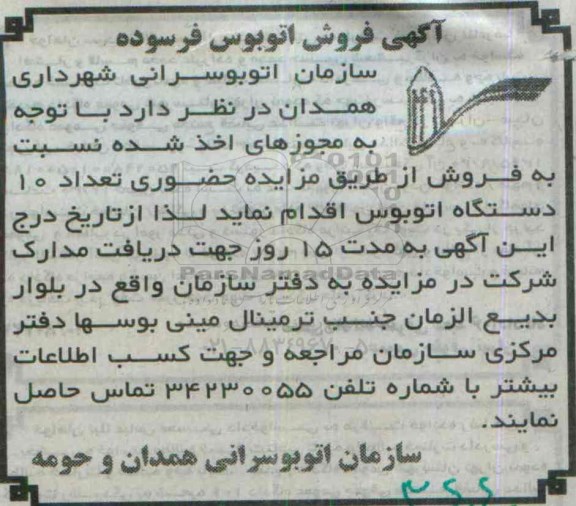 آگهی فروش اتوبوس فرسوده
سازمان اتوبوسرانی شهرداری
همدان در نظر دارد با توجه
به مجوزهای اخذ شده نسبت
به فروش از طریق مزایده حضوری تعداد ۱۰
دستگاه اتوبوس اقدام نماید لذا ازتاریخ درج
این آگهی به مدت ۱۵ روز جهت دریافت مدارک
شرکت در مزایده به دفتر سازمان واقع در بلوار
بدیع الزمان جنب ترمینال مینی بوسها دفتر
مرکزی سازمان مراجعه و جهت کسب اطلاعات
بیشتر با شماره تلفن ۳۴۲۳۰۰۵۵ تماس حاصل
نمایند.
سازمان اتوبوسرانی همدان و حومه
ParsNamadData
۰۲۱-۸۸۳۴۹۶۷۰